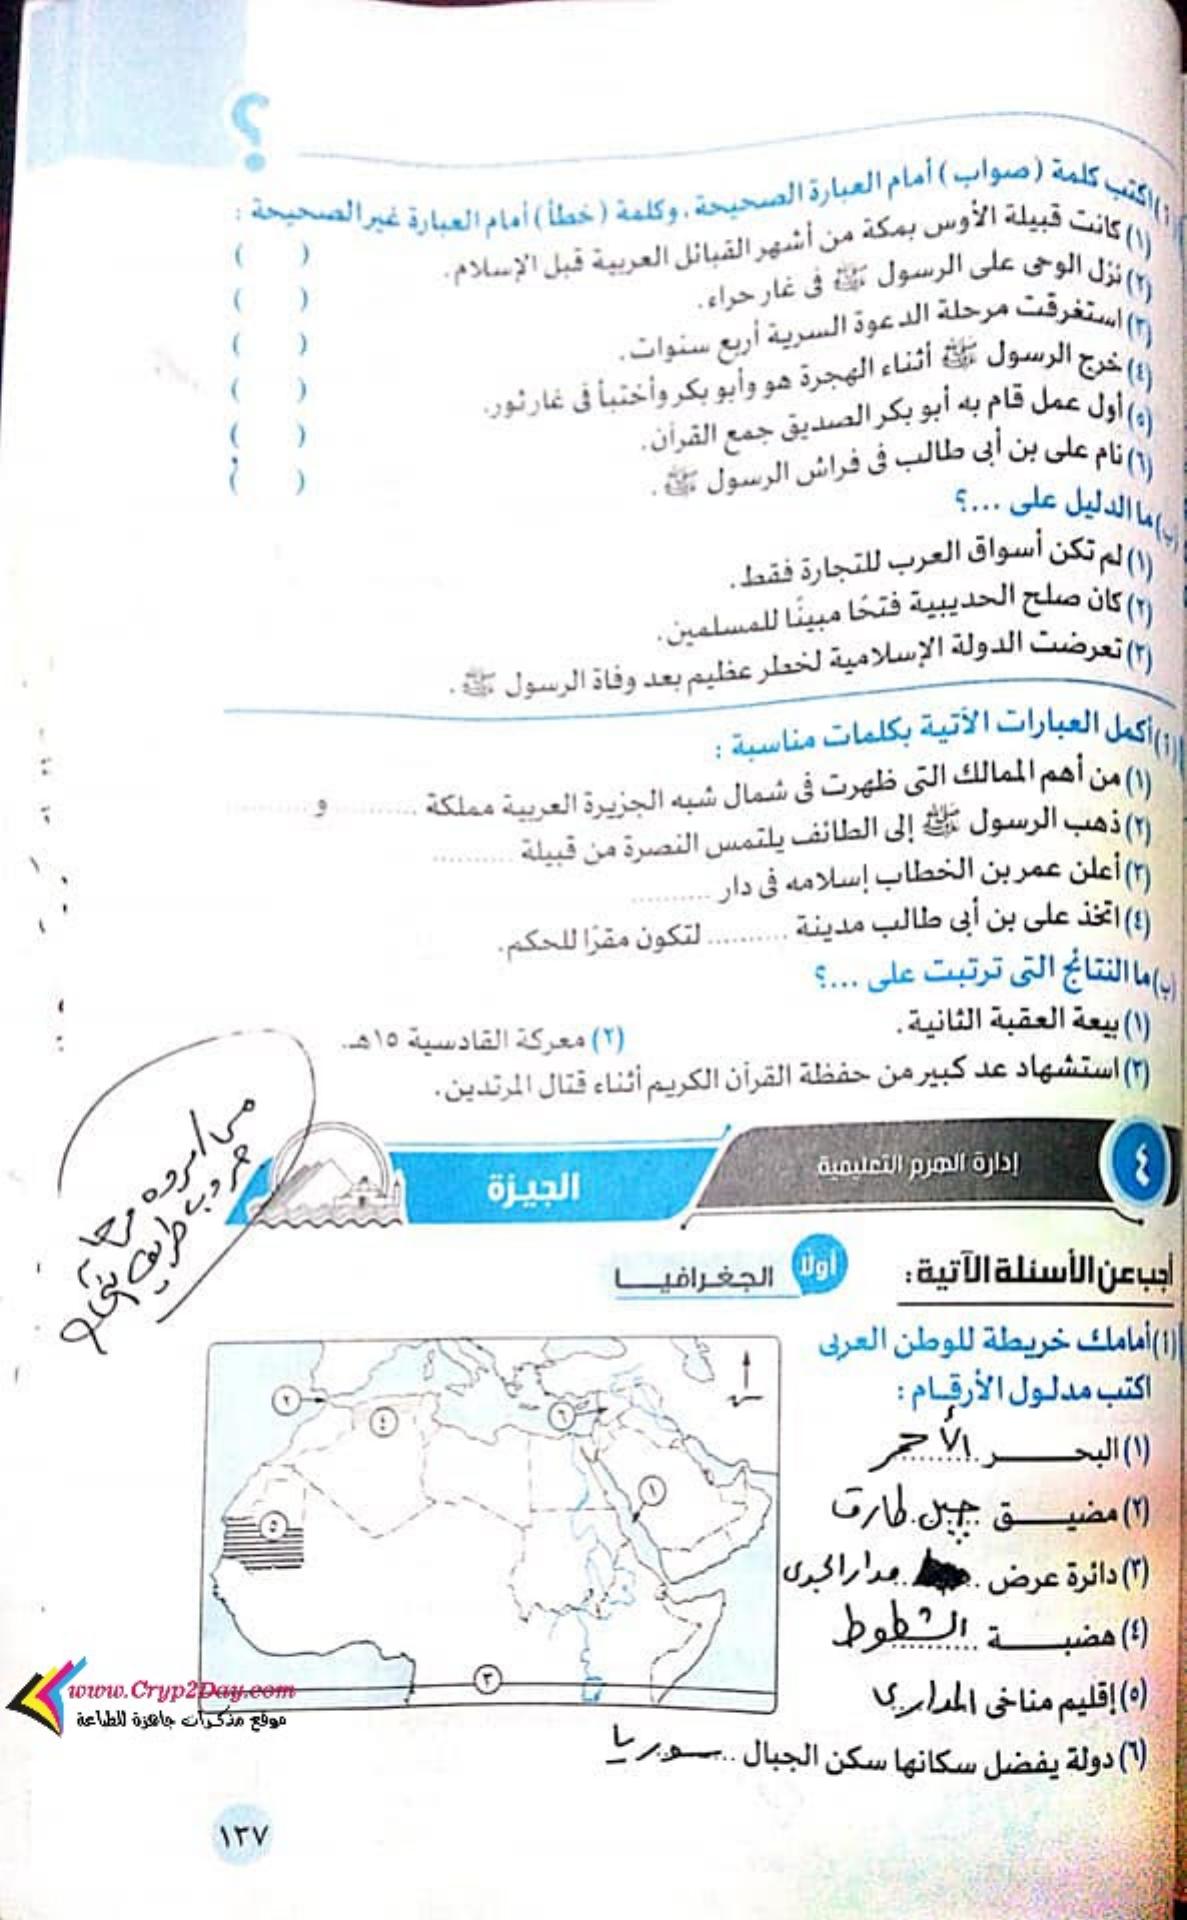 ؟
(أ) اكتب كلمة (صواب) أمام العبارة الصحيحة، وكلمة (خطأ) أمام العبارة غير الصحيحة :
(١) كانت قبيلة الأوس بمكة من أشهر القبائل العربية قبل الإسلام. ( )
(٢) نزل الوحى على الرسول ﷺ فى غار حراء. ( )
(٣) استغرقت مرحلة الدعوة السرية أربع سنوات. ( )
(٤) خرج الرسول ﷺ أثناء الهجرة هو وأبو بكر وأختبأ فى غار ثور. ( )
(٥) أول عمل قام به أبو بكر الصديق جمع القرآن. ( )
(٦) نام على بن أبى طالب فى فراش الرسول ﷺ. ( )
(ب) ما الدليل على ...؟
(١) لم تكن أسواق العرب للتجارة فقط.
(٢) كان صلح الحديبية فتحًا مبينًا للمسلمين.
(٣) تعرضت الدولة الإسلامية لخطر عظيم بعد وفاة الرسول ﷺ.
(أ) أكمل العبارات الآتية بكلمات مناسبة :
(١) من أهم الممالك التى ظهرت فى شمال شبه الجزيرة العربية مملكة .......... و ..........
(٢) ذهب الرسول ﷺ إلى الطائف يلتمس النصرة من قبيلة ..........
(٣) أعلن عمر بن الخطاب إسلامه فى دار ..........
(٤) اتخذ على بن أبى طالب مدينة .......... لتكون مقرًا للحكم.
(ب) ما النتائج التى ترتبت على ...؟
(١) بيعة العقبة الثانية. (٢) معركة القادسية ١٥هـ.
(٣) استشهاد عد كبير من حفظة القرآن الكريم أثناء قتال المرتدين.
٤ إدارة الهرم التعليمية الجيزة
أجب عن الأسئلة الآتية :
أولًا الجغرافيا
(أ) أمامك خريطة للوطن العربى
اكتب مدلول الأرقام :
(١) البحر الأحمر
(٢) مضيق جبل طارق
(٣) دائرة عرض مدار الجدى
(٤) هضبة الشطوط
(٥) إقليم مناخى المدارى
(٦) دولة يفضل سكانها سكن الجبال سوريا
٢
٤
٦
١
٥
٣
www.Cryp2Day.com
موقع مذكرات جاهزة للطباعة
١٣٧